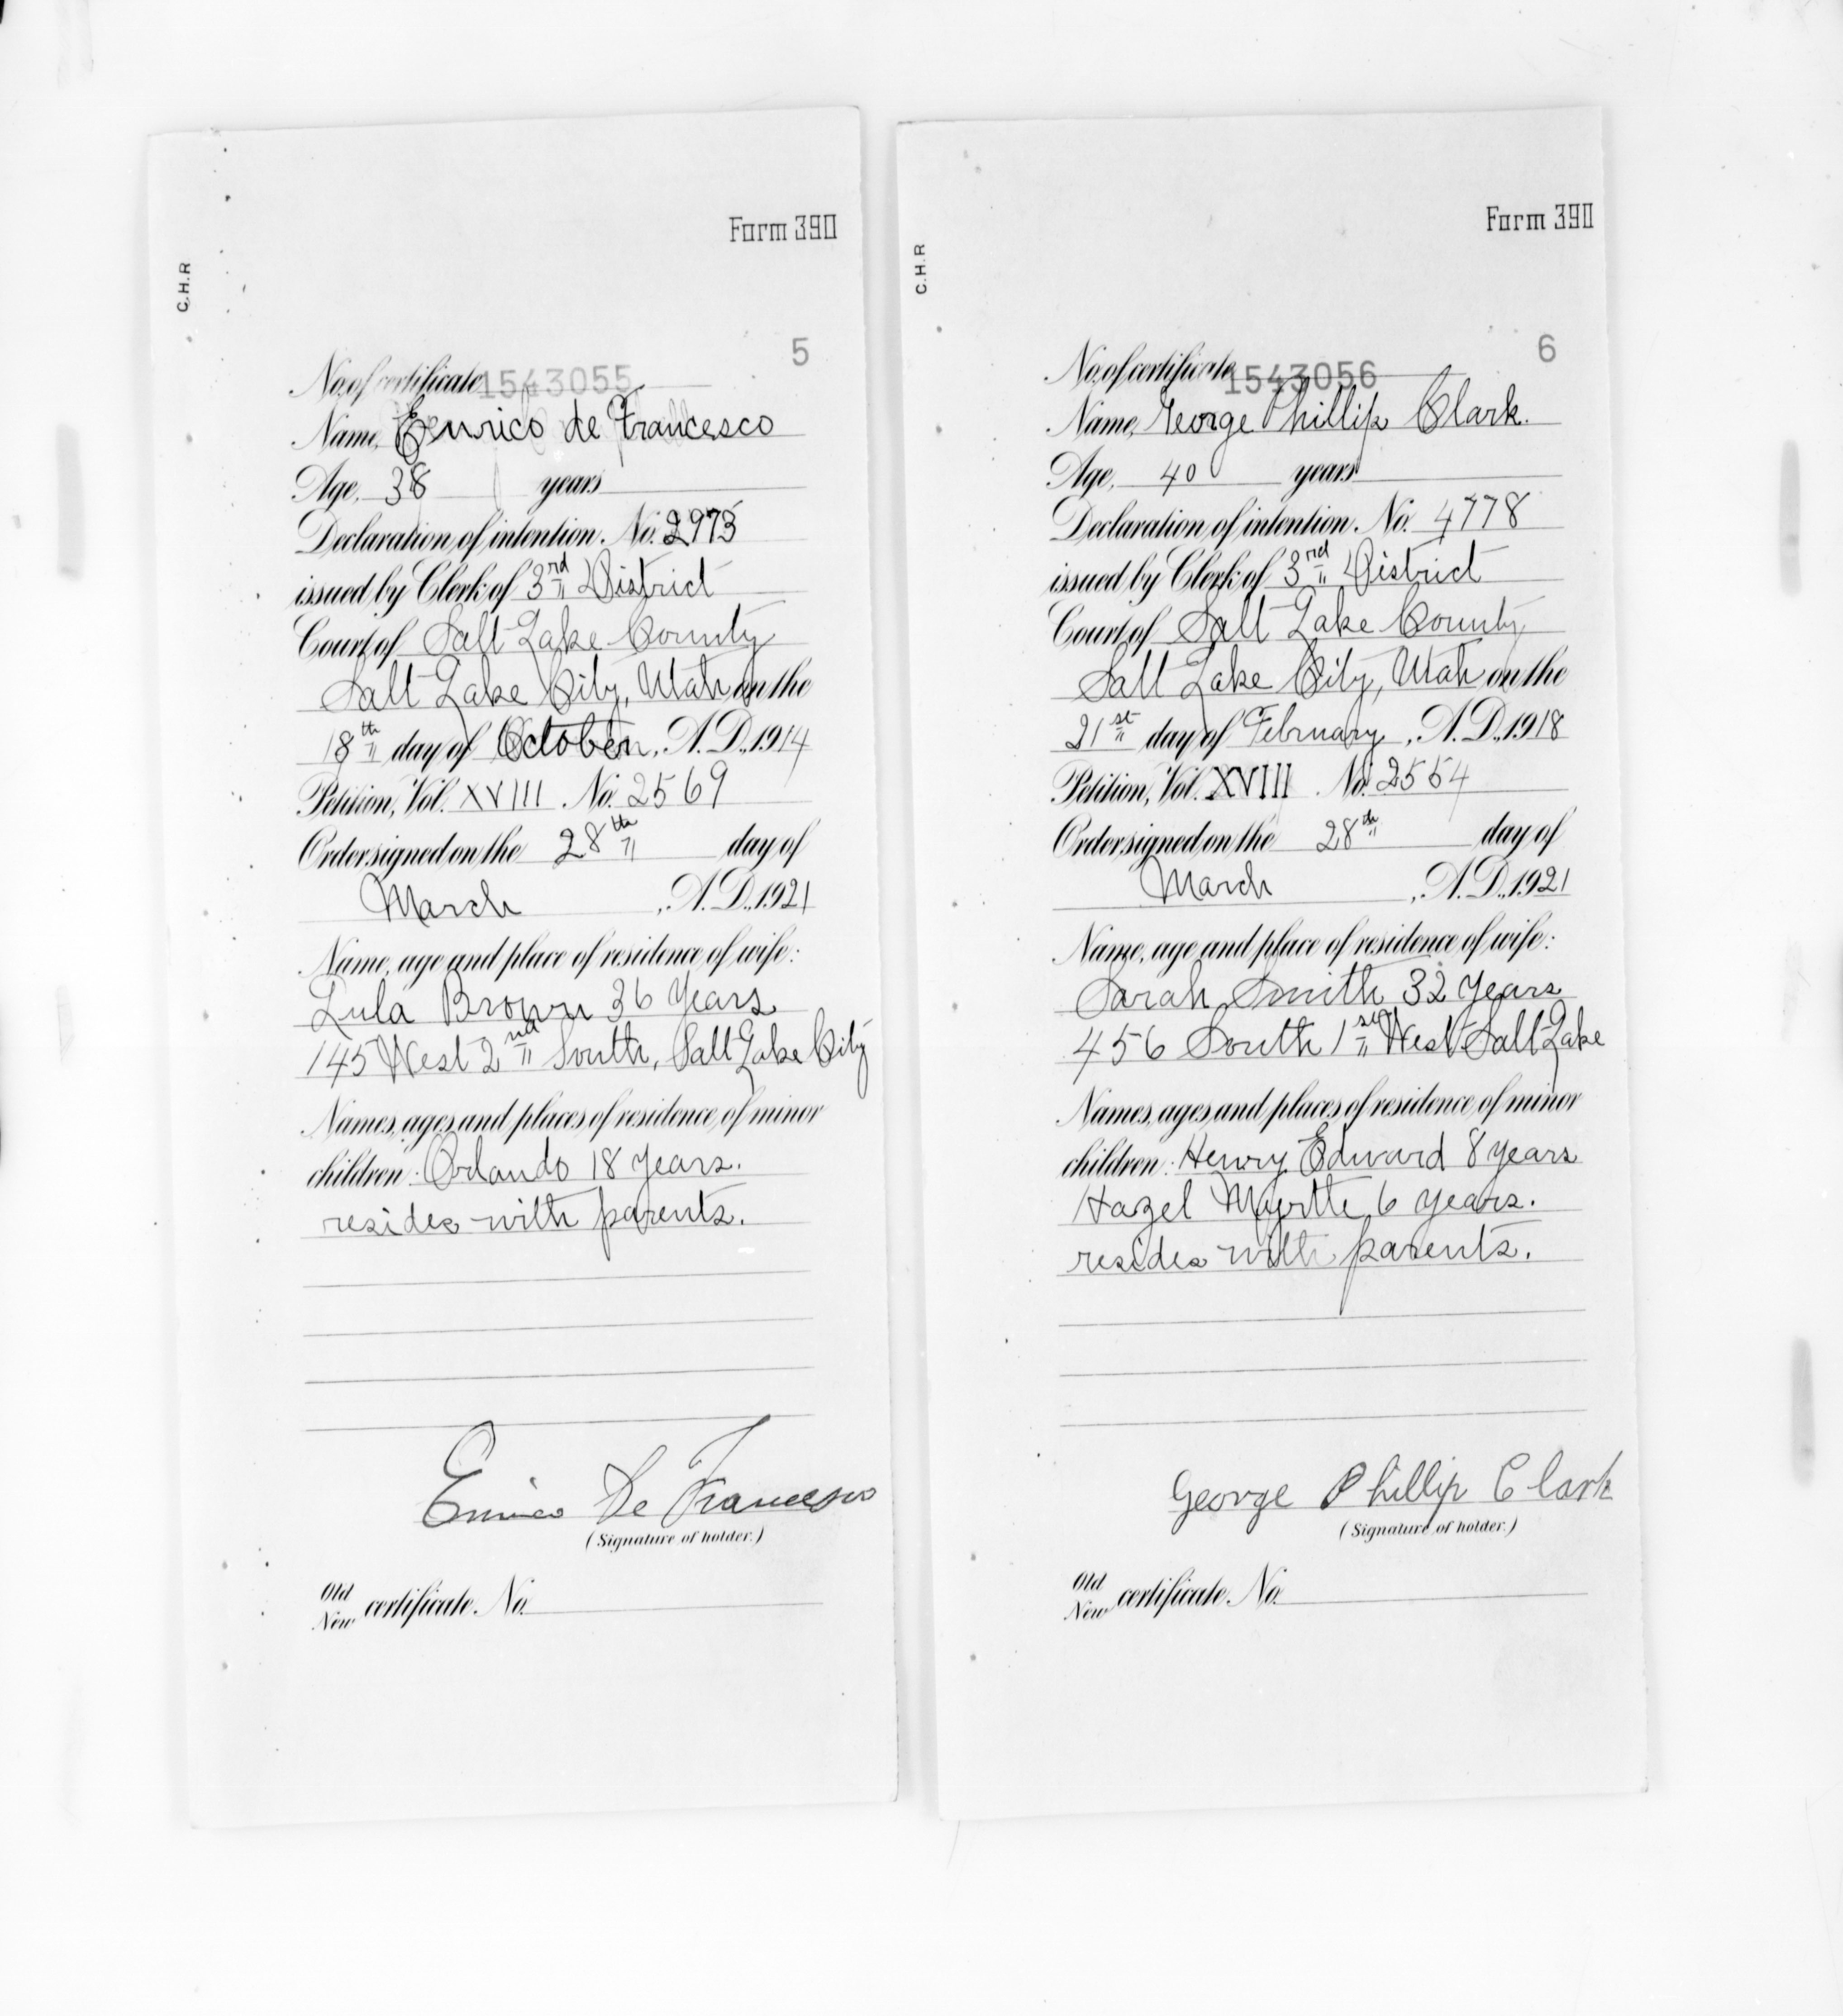 Form 390
C.H.R
5
No. of certificate 1543055
Name, Enrico de Francesco
Age, 38 years
Declaration of intention, No. 2973
issued by Clerk of 3rd District
Court of Salt Lake County
Salt Lake City, Utah on the
18th day of October, A.D. 1914
Petition, Vol. XVIII No. 2569
Order signed on the 28th day of
March, A.D. 1921
Name, age and place of residence of wife:
Lula Brown 36 years
145 West 2nd South, Salt Lake City
Names, ages and places of residence of minor
children: Orlando 18 years.
resides with parents.
Enrico De Francesco
(Signature of holder.)
Old
New certificate No.
Form 390
C.H.R
6
No. of certificate 1543056
Name, George Phillip Clark.
Age, 40 years
Declaration of intention, No. 4778
issued by Clerk of 3rd District
Court of Salt Lake County
Salt Lake City, Utah on the
21st day of February, A.D. 1918
Petition, Vol. XVIII No. 2554
Order signed on the 28th day of
March, A.D. 1921
Name, age and place of residence of wife:
Sarah Smith 32 years
456 South 1st West Salt Lake
Names, ages and places of residence of minor
children: Henry Edward 8 years
Hazel Myrtte 6 years.
resides with parents.
George Phillip Clark
(Signature of holder.)
Old
New certificate No.